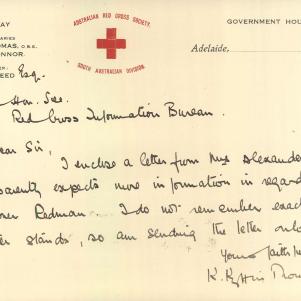 AUSTRALIAN RED CROSS SOCIETY.
SOUTH AUSTRALIAN DIVISION.
GOVERNMENT HOU
Adelaide,
AY
ARIES
OMAS, O.B.E.
ONNOR.
EED Esq.
Hon. Sec.
Red Cross Information Bureau.
ear Sir,
I enclose a letter from Mrs Alexander
parently expects more information in regard
ner Redman I do not remember exac
er stands, so am sending the letter on to
Yours faithfu